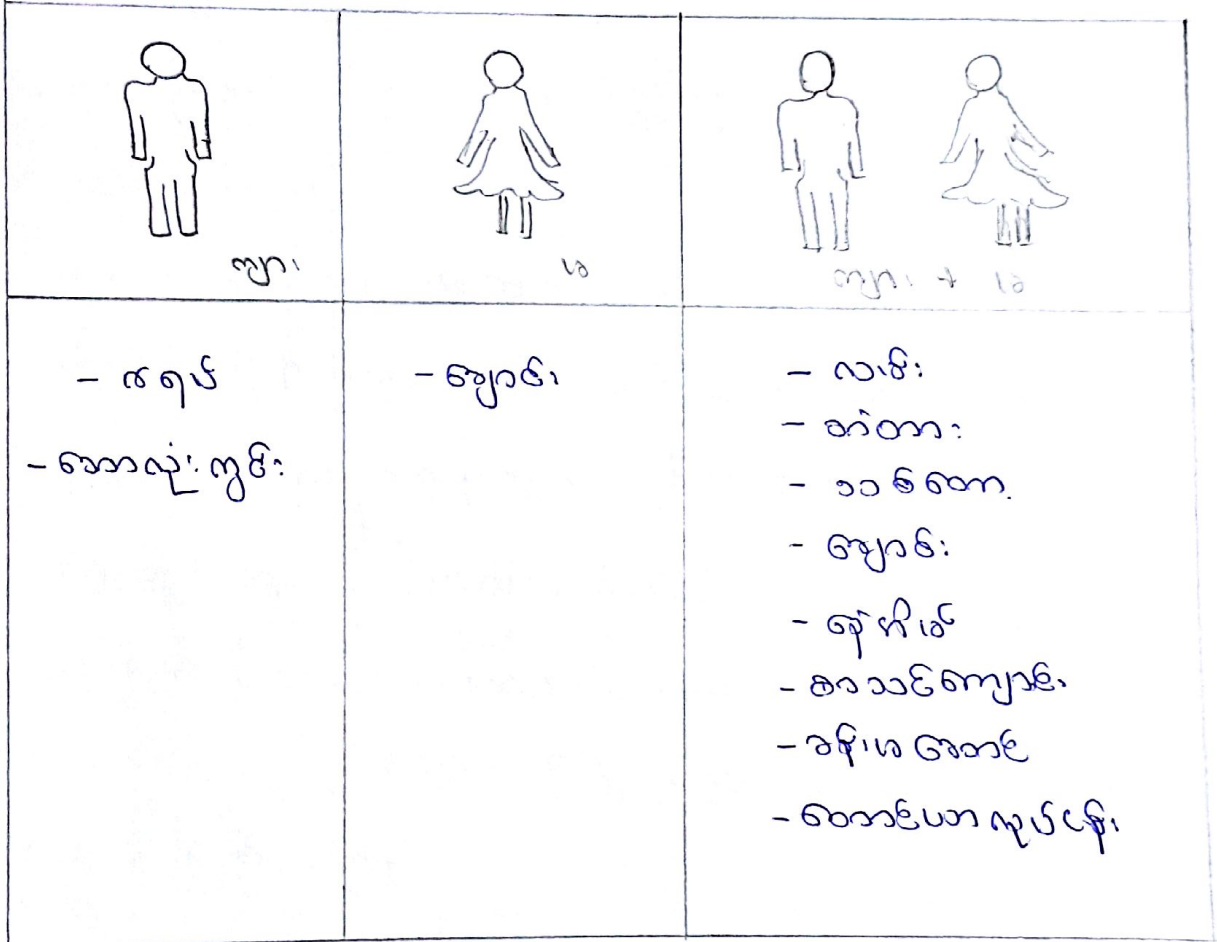 ကျား
မ
ကျား + မ
- ဇရပ်
- ဘောလုံးကွင်း
- ချောင်း
- လမ်း
- တံတား
- သစ်တော
- ချောင်း
- စာသင်ကျောင်း
- ခန်းမဆောင်
- တောင်ယာလုပ်ငန်း